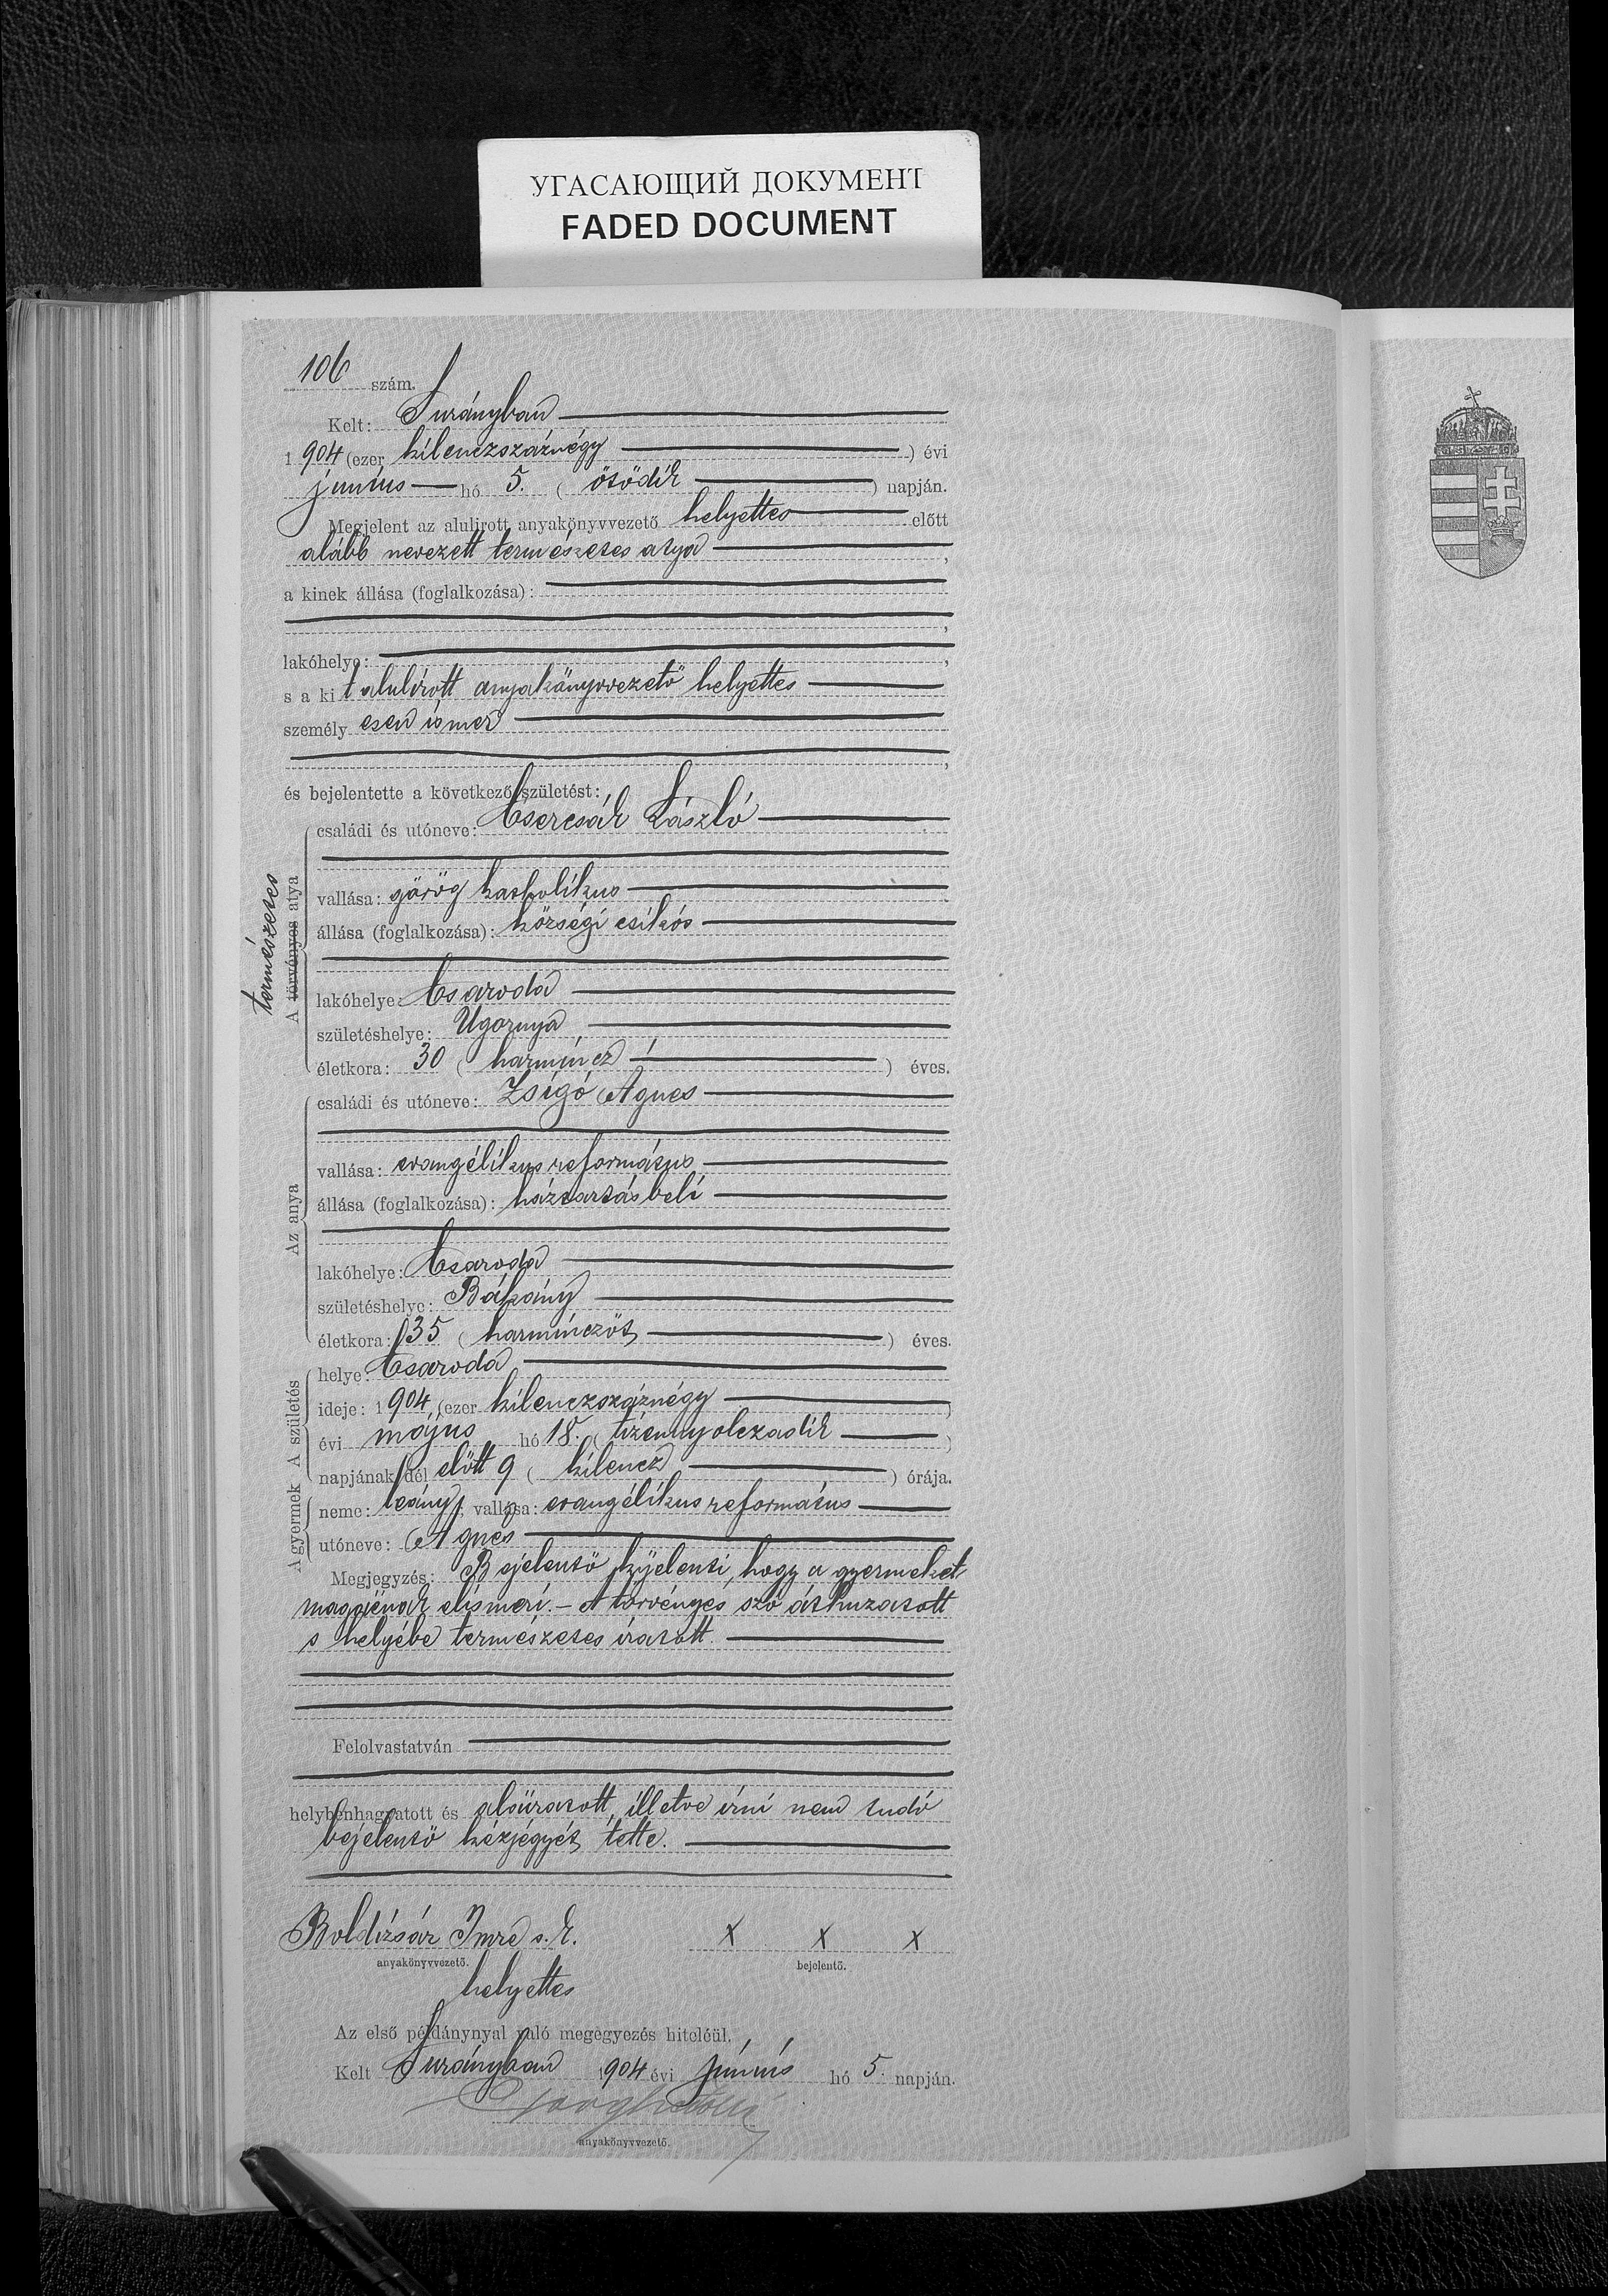 УГАСАЮЩИЙ ДОКУМЕНТ
FADED DOCUMENT
106 szám.
Kelt: Surányban
1904 (ezer kilenczszáznégy ) évi
junius hó 5. ( ötödik ) napján.
Megjelent az alulirott anyakönyvvezető helyettes előtt
alább nevezett természetes atya ,
a kinek állása (foglalkozása):
,
lakóhelye: ,
s a kit alulirott anyakönyvvezető helyettes
személyesen ismer
,
és bejelentette a következő születést:
természetes
A törvényes atya
családi és utóneve: Csercsák László
vallása: görög katholikus
állása (foglalkozása): községi csikós
lakóhelye: Csaroda
születéshelye: Ugornya
életkora: 30 ( harmincz ) éves.
Az anya
családi és utóneve: Zsigó Ágnes
vallása: evangélikus református
állása (foglalkozása): háztartásbeli
lakóhelye: Csaroda
születéshelye: Bákány
életkora: 35 ( harminczöt ) éves.
A születés
helye: Csaroda
ideje: 1904 (ezer kilenczszáznégy )
évi május hó 18. ( tizennyolczadik )
napjának dél előtt 9 ( kilencz ) órája.
A gyermek
neme: leány, vallása: evangélikus református
utóneve: Ágnes
Megjegyzés: Bejelentő kijelenti, hogy a gyermeket
magáénak elismeri. - A törvényes szó áthuzatott
s helyébe természetes iratott.
Felolvastatván
helybenhagyatott és aláiratott, illetve irni nem tudó
bejelentő kézjegyét tette.
Boldizsár Imre s. k. x x x
anyakönyvvezető. bejelentő.
helyettes
Az első példánynyal való megegyezés hiteléül.
Kelt Surányban 1904 évi június hó 5. napján.
anyakönyvvezető.